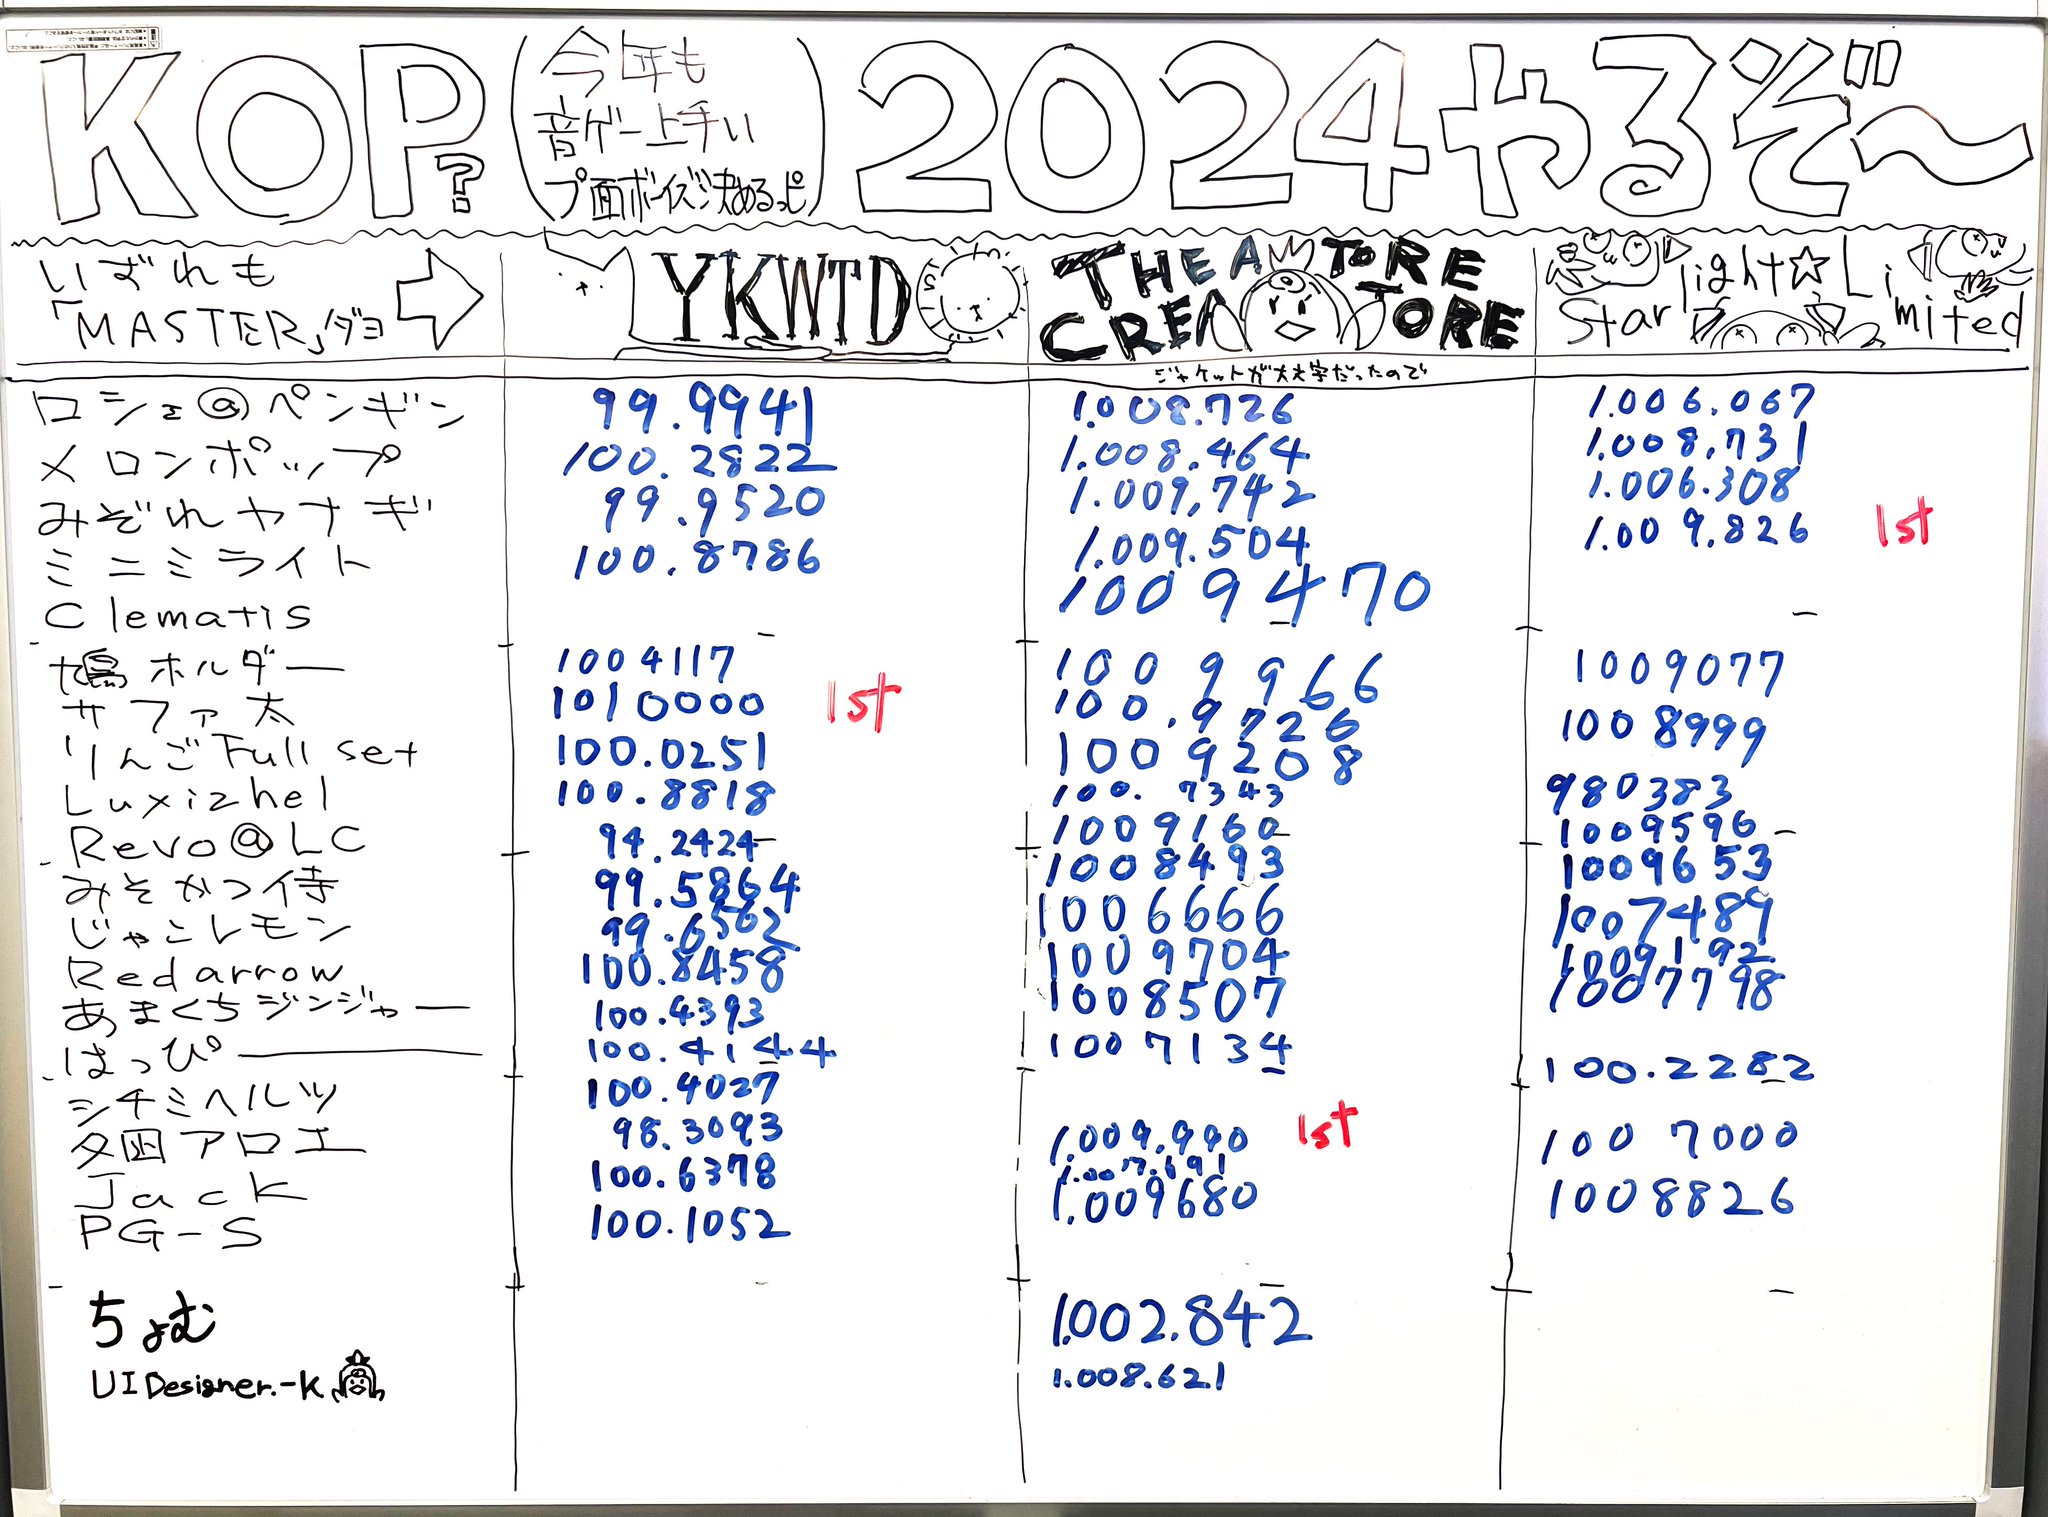 KOP?
(今年も
音ゲー上手い
プ面ボーイズ決めるっピ)
2024やるぞ〜
いずれも
「MASTER」ダヨ
YKWTD
THEATORE
CREATORE
ジャケットが大文字だったので
Starlight☆Limited
ロシェ@ペンギン 99.9941 1.008.726 1.006.067
メロンポップ 100.2822 1.008.464 1.008.731
みぞれヤナギ 99.9520 1.009,742 1.006.308
ミニミライト 100.8786 1.009.504 1.009.826 1st
Clematis 1009470
鳩ホルダー 1004117 1009966 1009077
サファ太 1010000 1st 100.9726 1008999
りんごFull set 100.0251 1009208
Luxizhel 100.8818 100.7343 980383
Revo@LC 94.2424 1009160 1009596
みそかつ侍 99.5864 1008493 1009653
じゃこレモン 99.6562 1006666 1007489
Redarrow 100.8458 1009704 1009192
あまくちジンジャー 100.4393 1008507 1007798
はっぴー 100.4144 1007134 100.2282
シチミヘルツ 100.4027
夕凪アロエ 98.3093 1.009.990 1st 1007000
Jack 100.6378 1.007.691
PG-S 100.1052 1.009680 1008826
ちょむ 1.002.842
UI Designer.-K 1.008.621